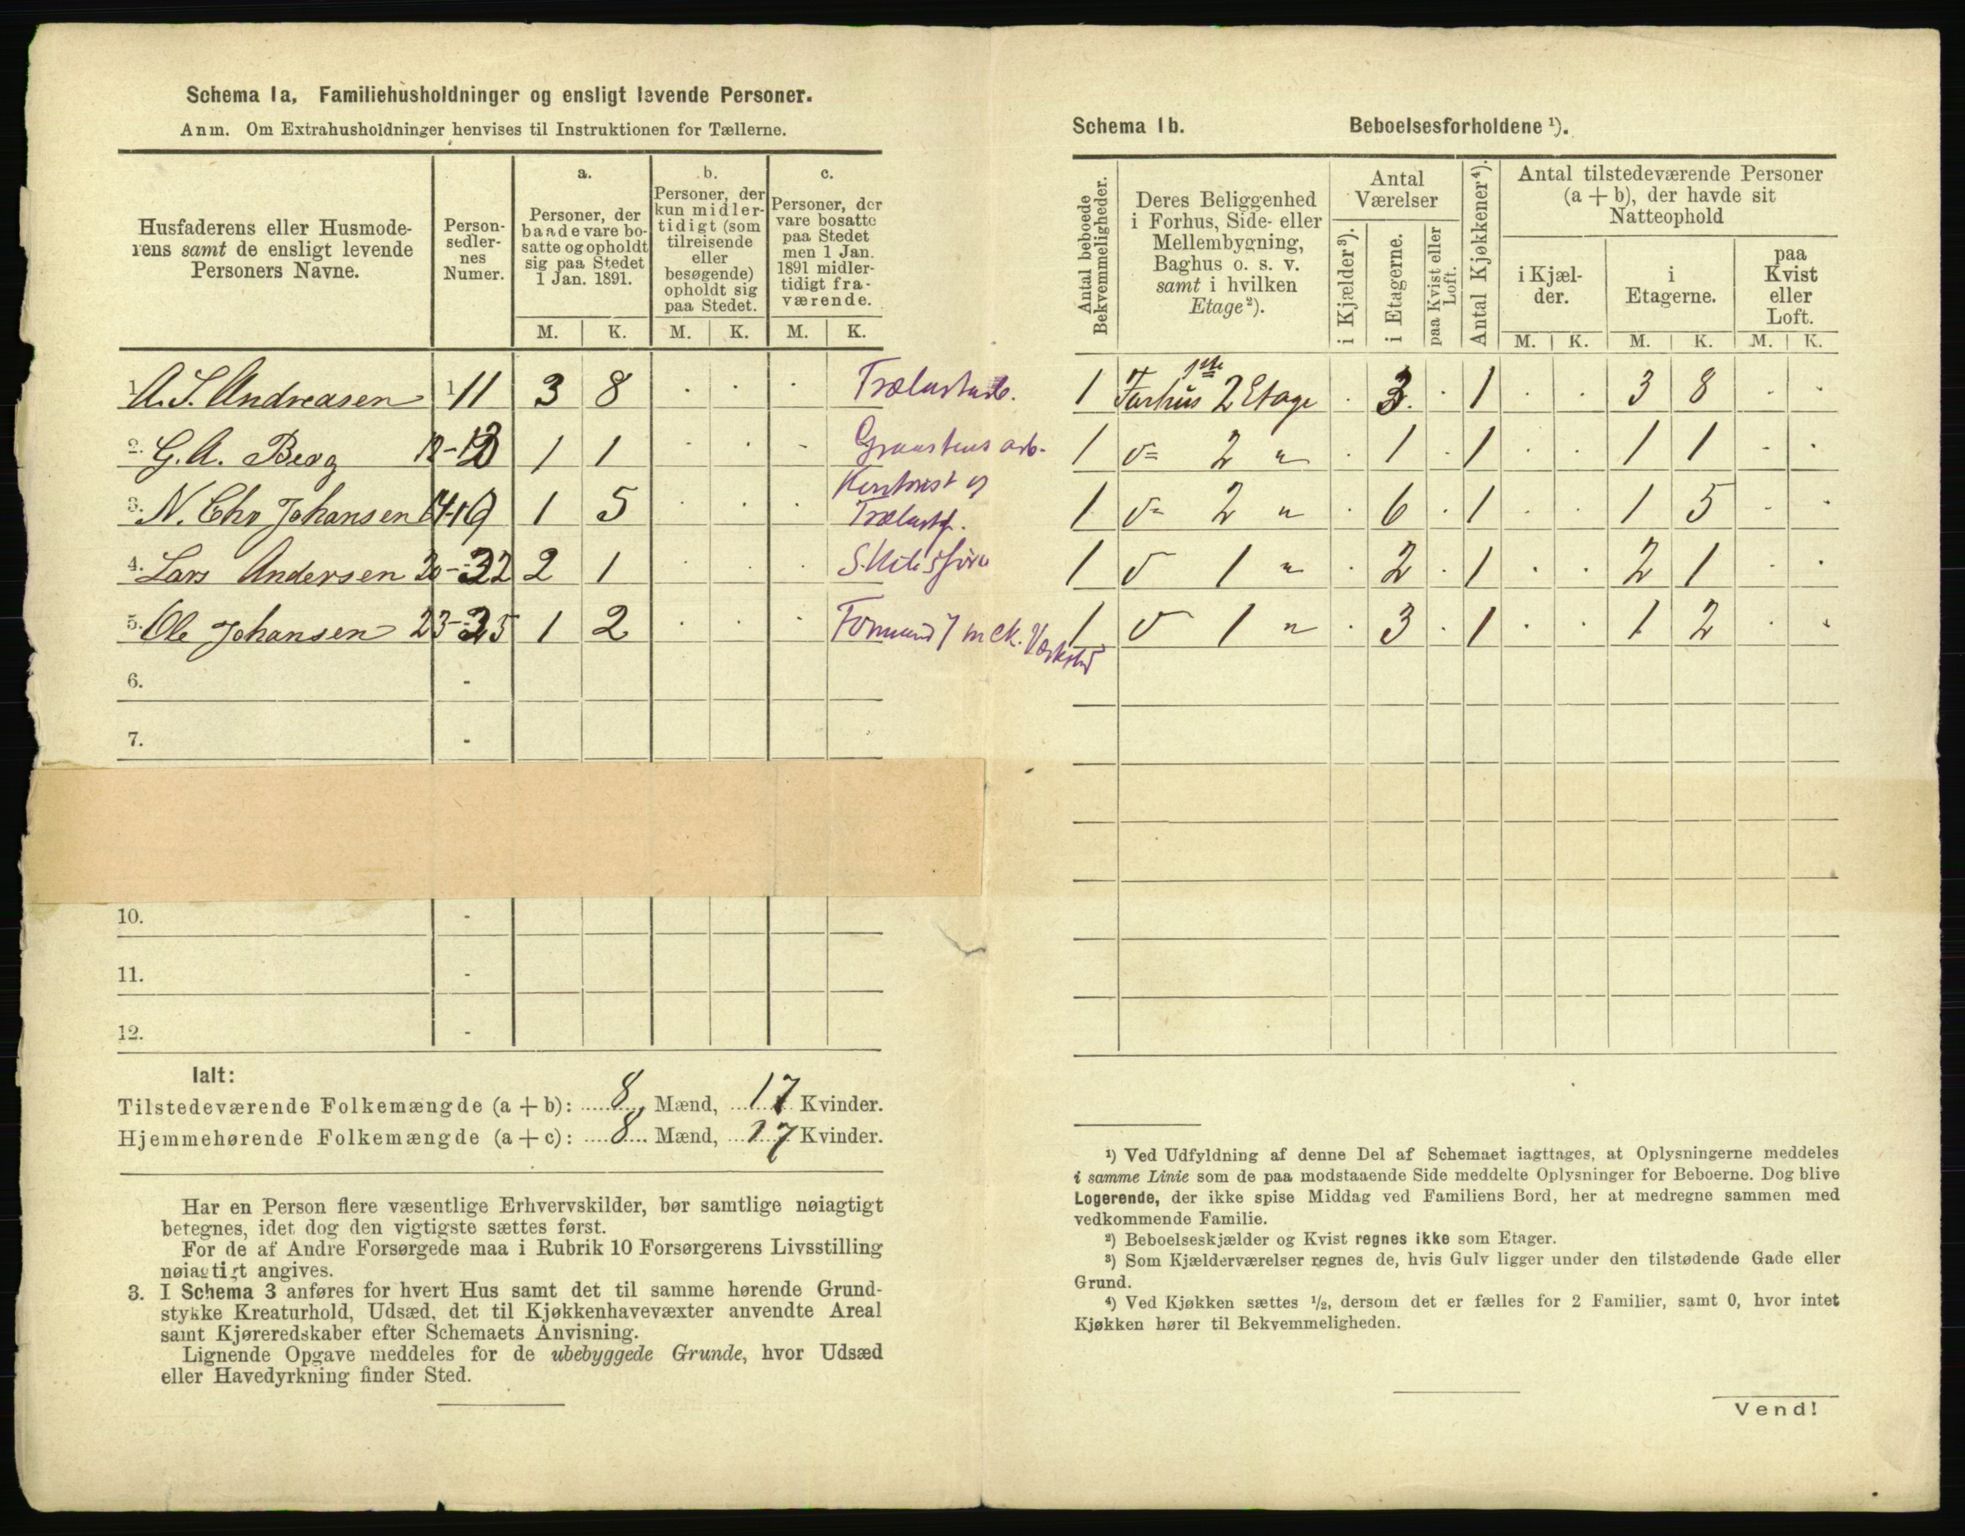 Schema 1a, Familiehusholdninger og ensligt levende Personer.
Anm. Om Extrahusholdninger henvises til Instruktionen for Tællerne.
Husfaderens eller Husmoderens samt de ensligt levende Personers Navne.
Person-sedler-nes Numer.
a. Personer, der baade vare bosatte og opholdt sig paa Stedet 1 Jan. 1891.
b. Personer, der kun midlertidigt (som tilreisende eller besøgende) opholdt sig paa Stedet.
c. Personer, der vare bosatte paa Stedet men 1 Jan. 1891 midlertidigt fraværende.
M. K. M. K. M. K.
1. A. S. Andreasen 1-11 3 8 . . .
2. G. A. Berg 12-13 1 1 . . .
3. N. Chr Johansen 14-19 1 5 . . .
4. Lars Andersen 20-22 2 1 . . .
5. Ole Johansen 23-25 1 2 . . . Formand i mek. Værksted
6. -
7. -
10. -
11. -
12. -
Ialt:
Tilstedeværende Folkemængde (a + b): 8 Mænd, 17 Kvinder.
Hjemmehørende Folkemængde (a + c): 8 Mænd, 17 Kvinder.
Har en Person flere væsentlige Erhvervskilder, bør samtlige nøiagtigt
betegnes, idet dog den vigtigste sættes først.
For de af Andre Forsørgede maa i Rubrik 10 Forsørgerens Livsstilling
nøiagtigt angives.
3. I Schema 3 anføres for hvert Hus samt det til samme hørende Grund-
stykke Kreaturhold, Udsæd, det til Kjøkkenhavevæxter anvendte Areal
samt Kjøreredskaber efter Schemaets Anvisning.
Lignende Opgave meddeles for de ubebyggede Grunde, hvor Udsæd
eller Havedyrkning finder Sted.
Schema 1b. Beboelsesforholdene ¹).
Antal beboede Bekvemmeligheder.
Deres Beliggenhed i Forhus, Side- eller Mellembygning, Baghus o. s. v. samt i hvilken Etage²).
Antal Værelser
i Kjælder³).
i Etagerne.
paa Kvist eller Loft.
Antal Kjøkkener⁴).
Antal tilstedeværende Personer (a + b), der havde sit Natteophold
i Kjæl-der.
i Etagerne.
paa Kvist eller Loft.
M. K. M. K. M. K.
1 Forhus 2 Etage . 3 . 1 . . 3 8 . .
1 2 " . 1 . 1 . . 1 1 . .
1 2 " . 6 . 1 . . 1 5 . .
1 1 " . 2 . 1 . . 2 1 . .
1 1 " . 3 . 1 . . 1 2 . .
¹) Ved Udfyldning af denne Del af Schemaet iagttages, at Oplysningerne meddeles
i samme Linie som de paa modstaaende Side meddelte Oplysninger for Beboerne. Dog blive
Logerende, der ikke spise Middag ved Familiens Bord, her at medregne sammen med
vedkommende Familie.
²) Beboelseskjælder og Kvist regnes ikke som Etager.
³) Som Kjælderværelser regnes de, hvis Gulv ligger under den tilstødende Gade eller
Grund.
⁴) Ved Kjøkken sættes ½, dersom det er fælles for 2 Familier, samt 0, hvor intet
Kjøkken hører til Bekvemmeligheden.
Vend!